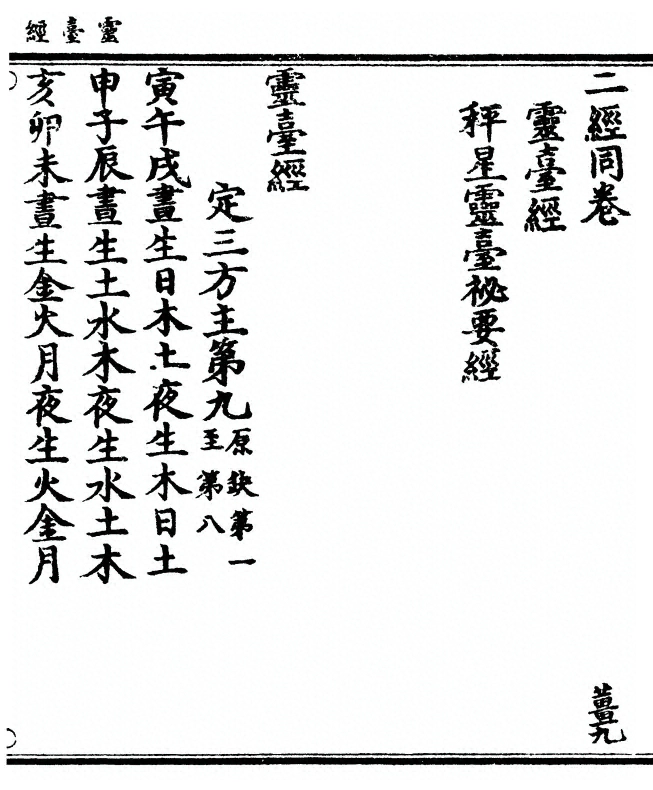 靈臺經
二經同卷
薑九
靈臺經
秤星靈臺祕要經
靈臺經
定三方主第九原缺第一至第八
寅午戌晝生日木土夜生木日土
申子辰晝生土水木夜生水土木
亥卯未晝生金火月夜生火金月